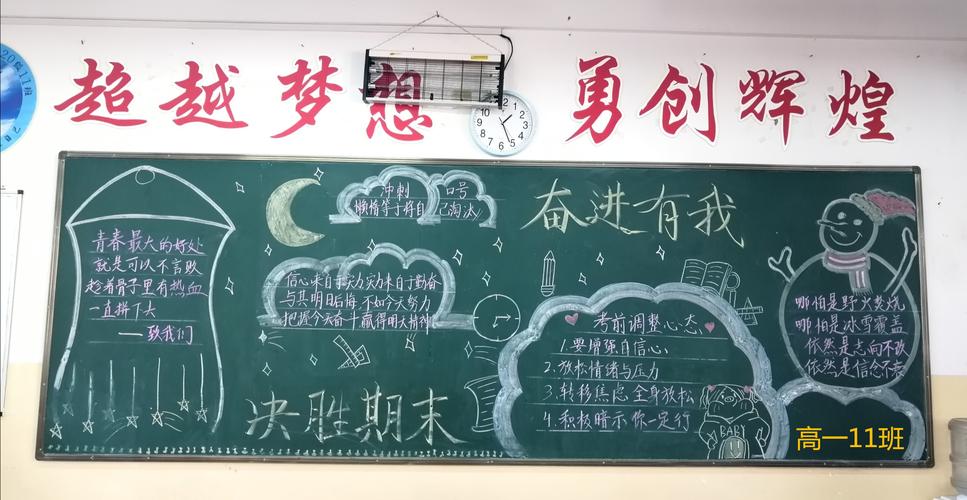 超越梦想 勇创辉煌
12
1
2
3
4
5
6
7
8
9
10
11
青春最大的好处
就是可以不言败
趁着骨子里有热血
一直拼下去
——致我们
冲刺 口号
懒惰等于将自己淘汰
信心来自于实力 实力来自于勤奋
与其明日后悔 不如今天努力
把握今天奋斗 赢得明天精神
决胜期末
奋进有我
考前调整心态
1.要增强自信心
2.放松情绪与压力
3.转移焦虑 全身放松
4.积极暗示 你一定行
BABY
哪怕是野火焚烧
哪怕是冰雪覆盖
依然是志向不改
依然是信念不衰
高一11班